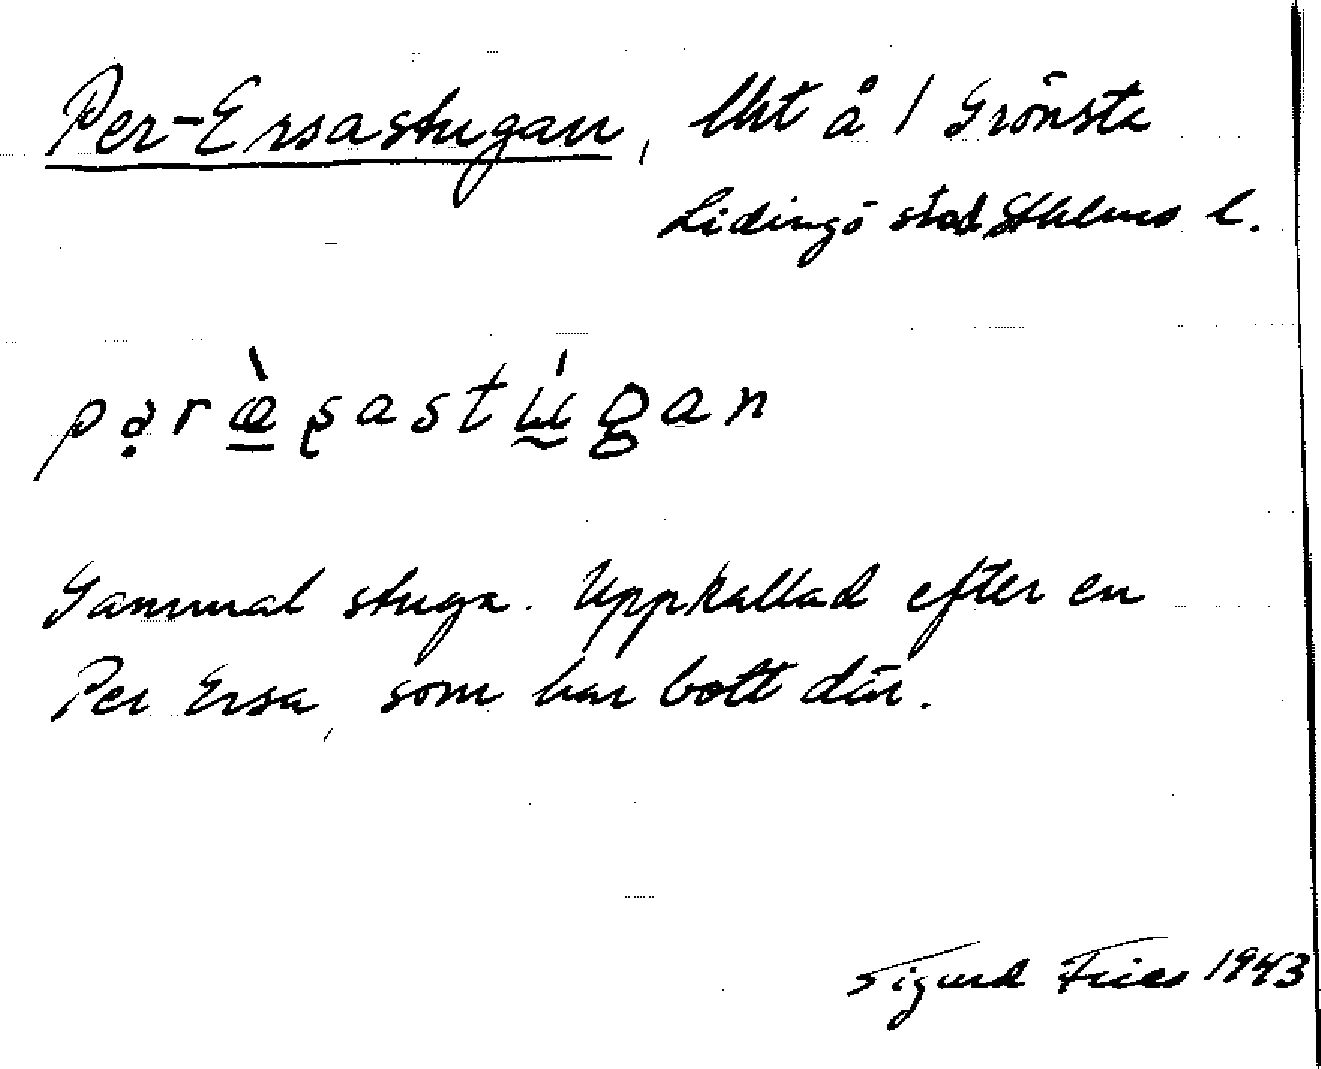 Per-Ersastugan, lht å 1 Grönsta
Lidingö stad Sthlms l.
pəræ̀ʂastúgan
Gammal stuga. Uppkallad efter en
Per Ersa, som har bott där.
Sigurd Fries 1943